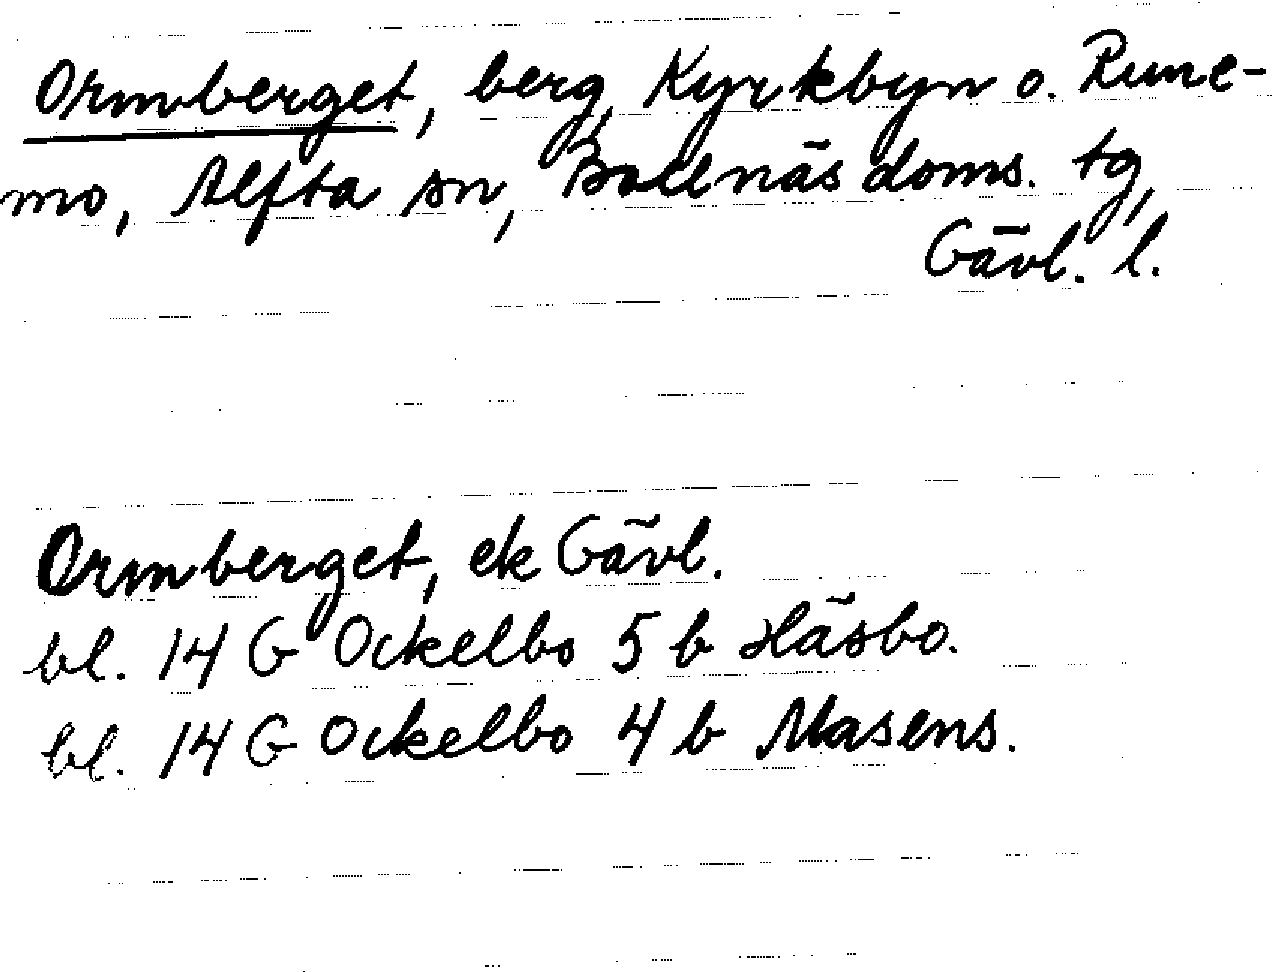 Ormberget, berg, Kyrkbyn o. Rune-
mo, Alfta sn, Bollnäs doms. tg,
Gävl. l.
Ormberget, ek Gävl.
bl. 14 G Ockelbo 5 b Häsbo.
bl. 14 G Ockelbo 4 b Masens.